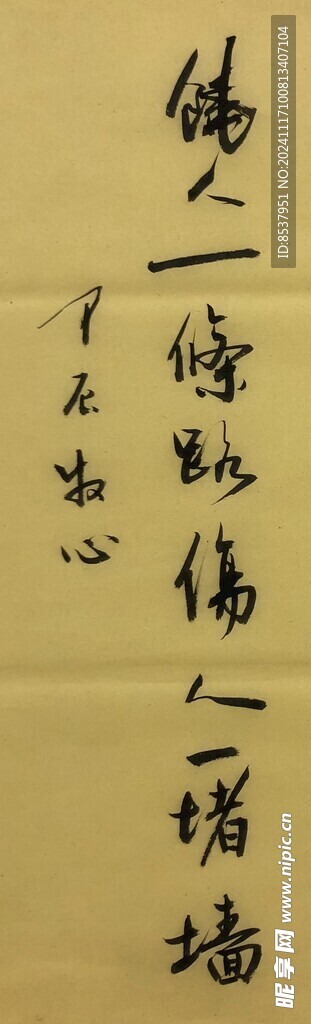 饒人一條路傷人一堵墙
甲辰牧心
ID:8537951 NO:20241117100813407104
昵享网 www.nipic.cn